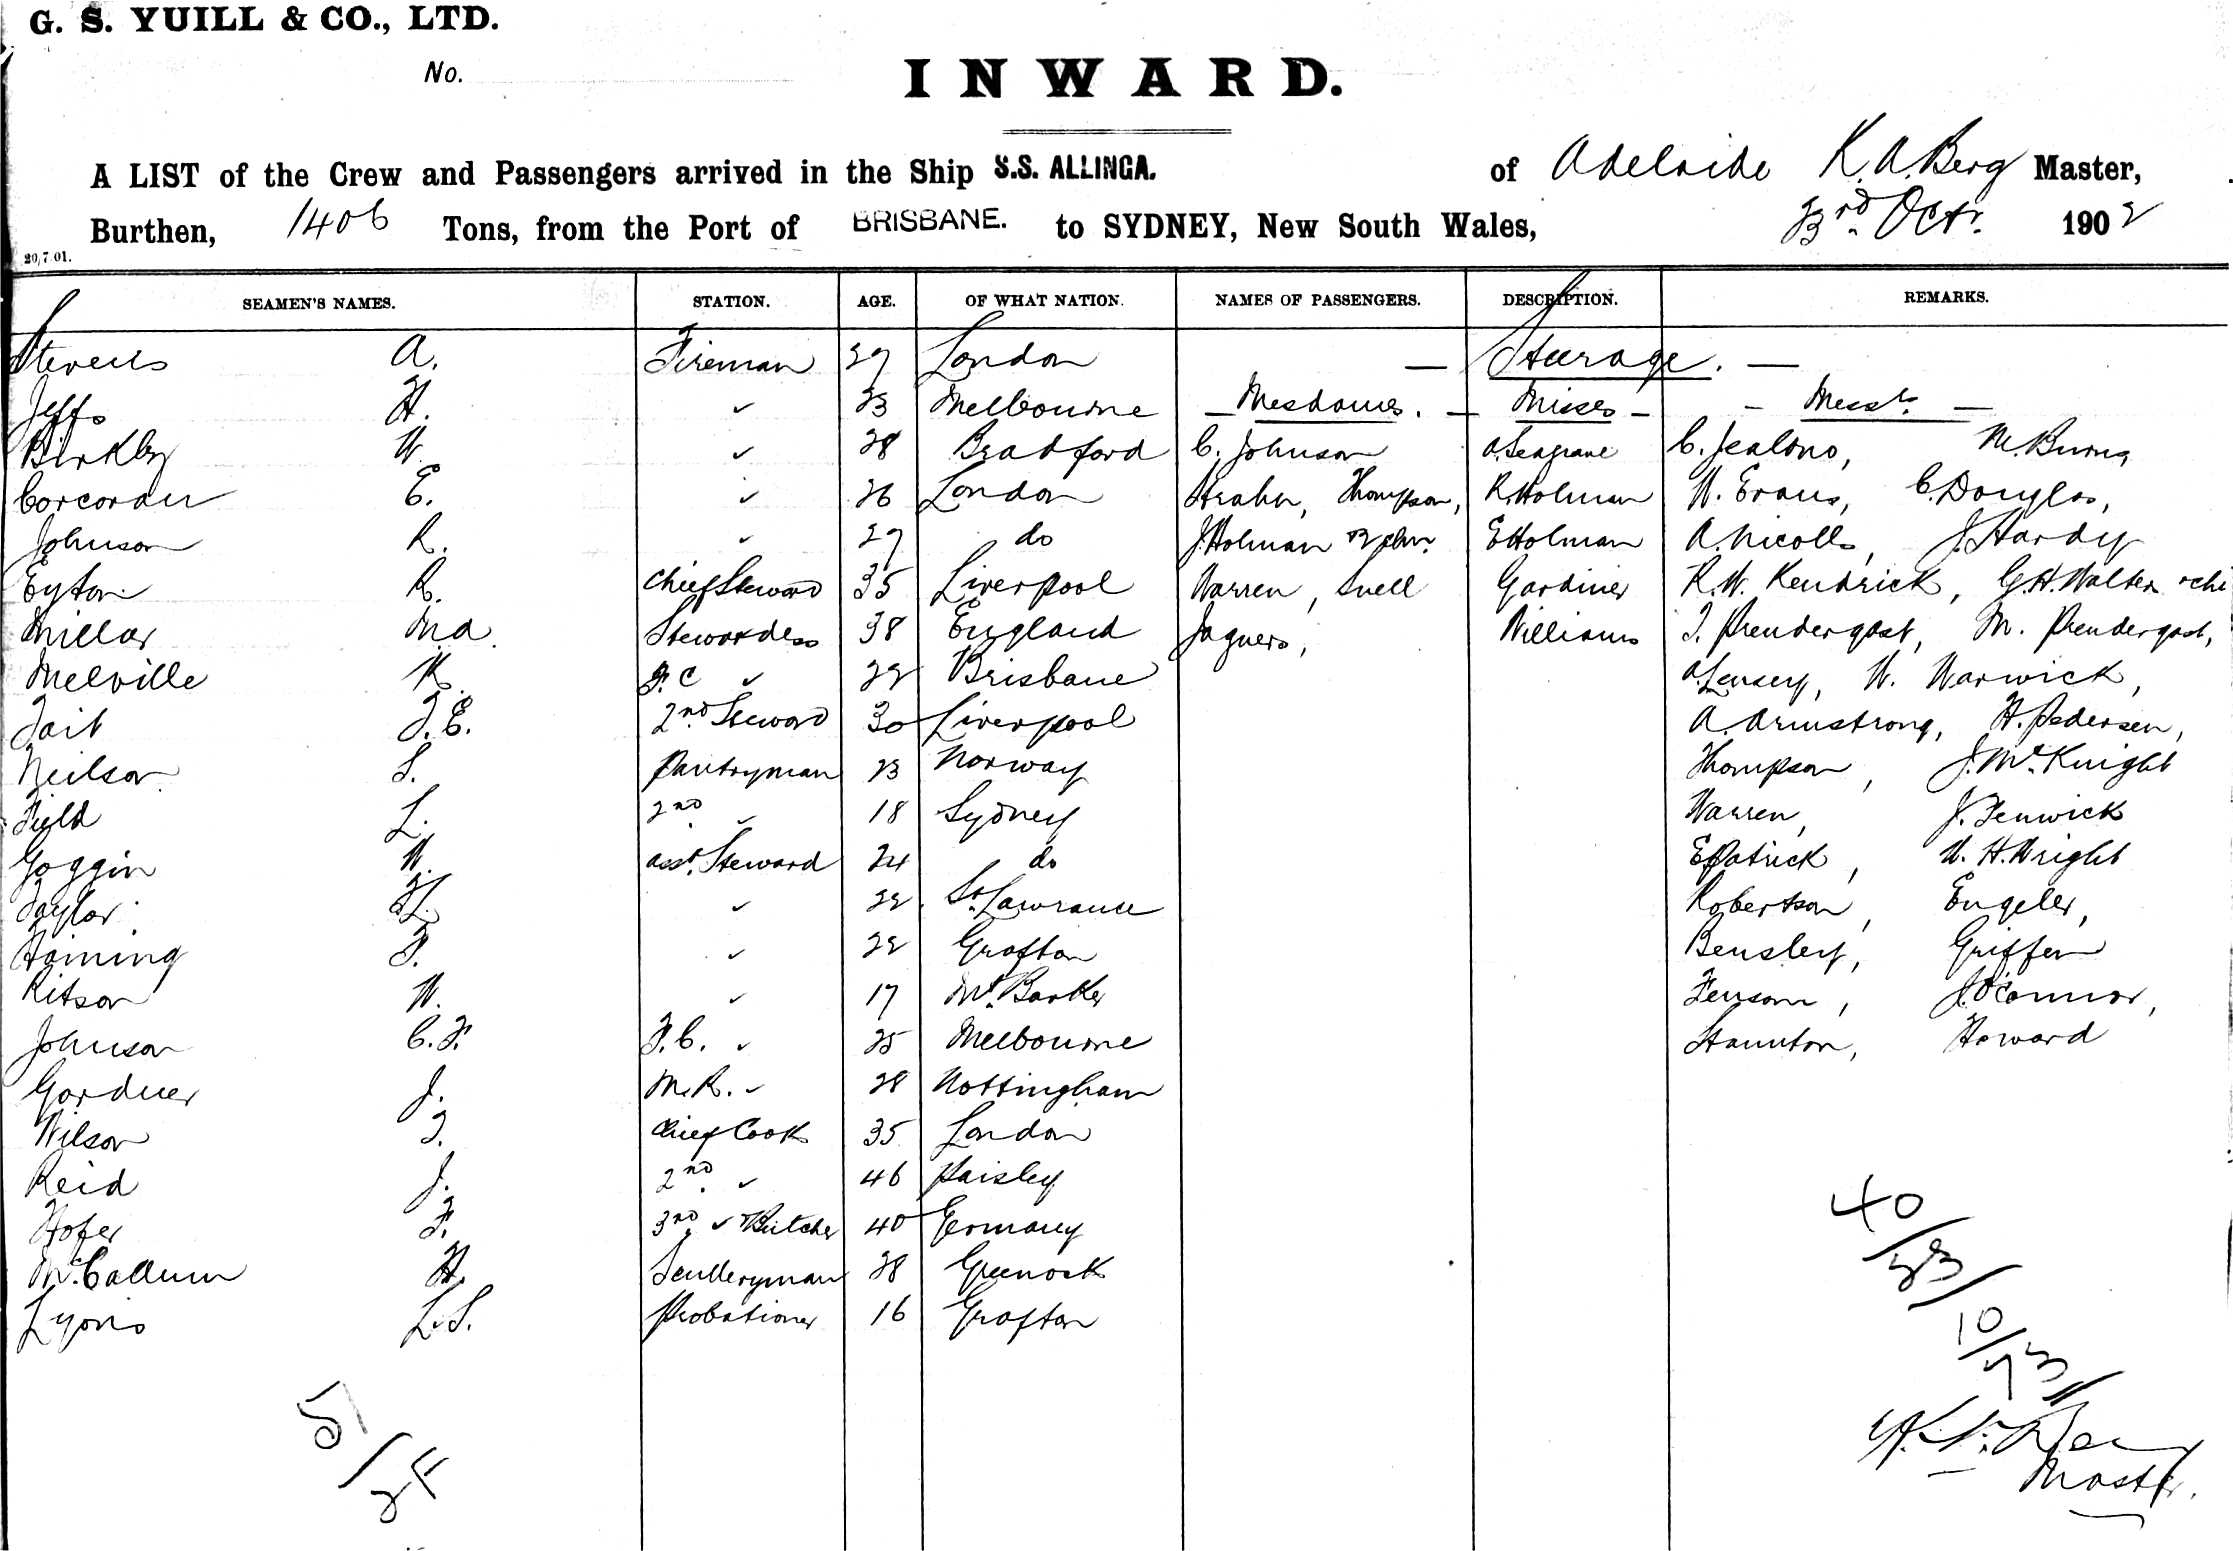 G. S. YUILL & CO., LTD.
No.
INWARD.
A LIST of the Crew and Passengers arrived in the Ship S.S. ALLINGA. of Adelaide K. A. Berg Master,
Burthen, 1406 Tons, from the Port of BRISBANE. to SYDNEY, New South Wales, 3rd Octr. 1902
20/7.01.
SEAMEN'S NAMES. STATION. AGE. OF WHAT NATION. NAMES OF PASSENGERS. DESCRIPTION. REMARKS.
Stevens A. Fireman 29 London — Steerage. —
Jeffs H. ✓ 23 Melbourne — Mesdames. — Misses — — Messrs. —
Birkby W. ✓ 28 Bradford C. Johnson A. Seagrave C. Jealons, M. Burns
Corcoran E. ✓ 26 London Strahn, Thompson, R. Holman W. Evans, C. Douglas,
Johnson R. ✓ 29 do J. Holman E Holman A. Nicolls, J. Hardy
Eyton R. Chief Steward 35 Liverpool Warren, Snell Gardiner R. W. Kendrick, G. H. Walter + chi
Millar Md Stewardess 38 England Jaguers, Williams T. Prendergast, M. Prendergast,
Melville K. F. C ✓ 22 Brisbane W. Warwick,
Tait T. E. 2nd Steward 30 Liverpool A. Armstrong, H. Pedersen,
Neilson S. Pantryman 23 Norway Thompson, J. McKnight
Field L. 2nd ✓ 18 Sydney Warren, J. Fenwick
Goggin W. asst. Steward 24 do E Patrick, W. H. Wright
Taylor H. ✓ 22 St. Lawrance Robertson, Engeler,
Haining F. ✓ 22 Grafton Bensley, Griffen
Ritson W. ✓ 17 Mt. Barker Fensom, J. O'Connor,
Johnson C. F. F. C. ✓ 25 Melbourne Staunton, Howard
Gardner J. M. R. ✓ 28 Nottingham
Wilson T. Chief Cook 35 London
Reid J. 2nd. ✓ 46 Paisley
Hofer F. 3rd. ✓ + Butcher 40 Germany
McCallum H. Sculleryman 28 Greenock
Lyons L. S. Probationer 16 Grafton
40/33/10/73//
51/24
K. A. Berg
Master.